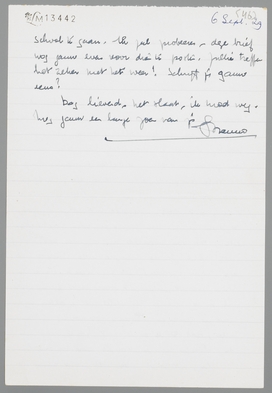 M13442
6 Sept. 49
school te gaan. Ik zal proberen deze brief
nog gauw even voor drie te posten. Jullie treffen
het zeker met het weer! Schrijf je gauw
eens?
Dag lieverd, het slaat, ik moet weg.
Nog gauw een lange zoen van je